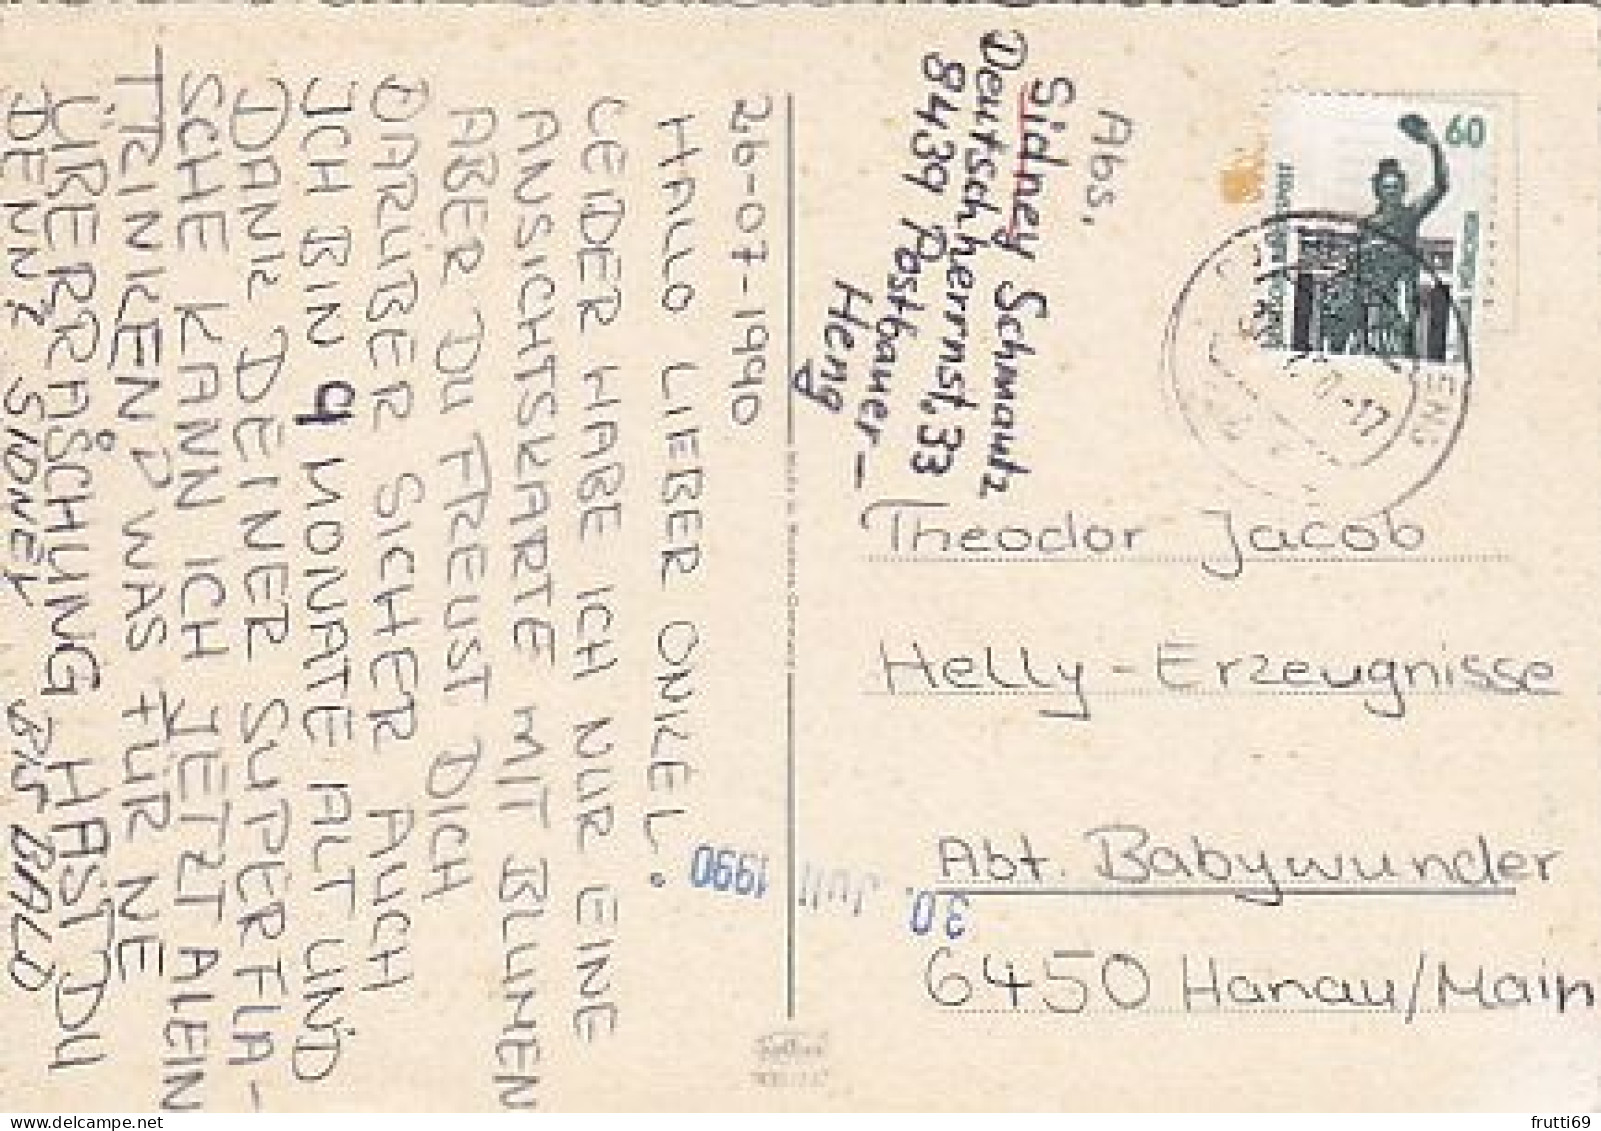 26-07-1990
HALLO LIEBER ONKEL.
LEIDER HABE ICH NUR EINE
ANSICHTSKARTE MIT BLUMEN
ABER DU FREUST DICH
DARÜBER SICHER AUCH
ICH BIN 9 MONATE ALT UND
DANK DEINER SUPERFLA-
SCHE KANN ICH JETZT ALEIN
TRINKEN WAS FÜR NE
ÜBERRASCHUNG HAST DU
DENN? SIDNEY BIS BALD
Abs,
Sidney Schmautz
Deutschherrnst. 33
8439 Postbauer-
Heng
60
DEUTSCHE BUNDESPOST
MÜNCHEN
ENG
-17
Theodor Jacob
Helly-Erzeugnisse
Abt. Babywunder
6450 Hanau/Main
30. JULI 1990
frutti69